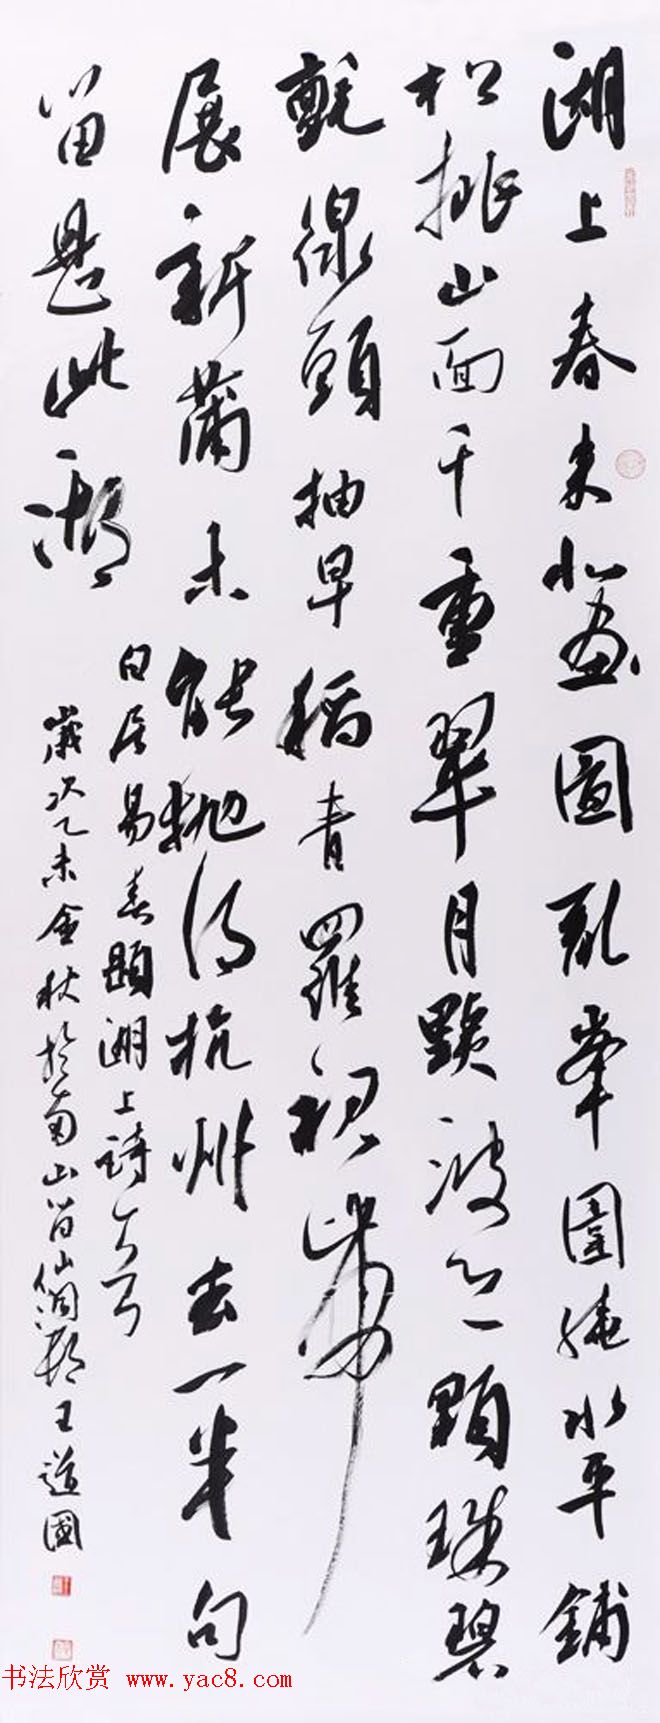 湖上春來似畫圖亂峯圍繞水平鋪
松排山面千重翠月點波心一顆珠碧
氈線頭抽早稻青羅裙帶
展新蒲未能拋得杭州去一半句
留是此湖
白居易春題湖上詩
歲次乙未金秋於山仙洞邨王道國
书法欣赏 www.yac8.com